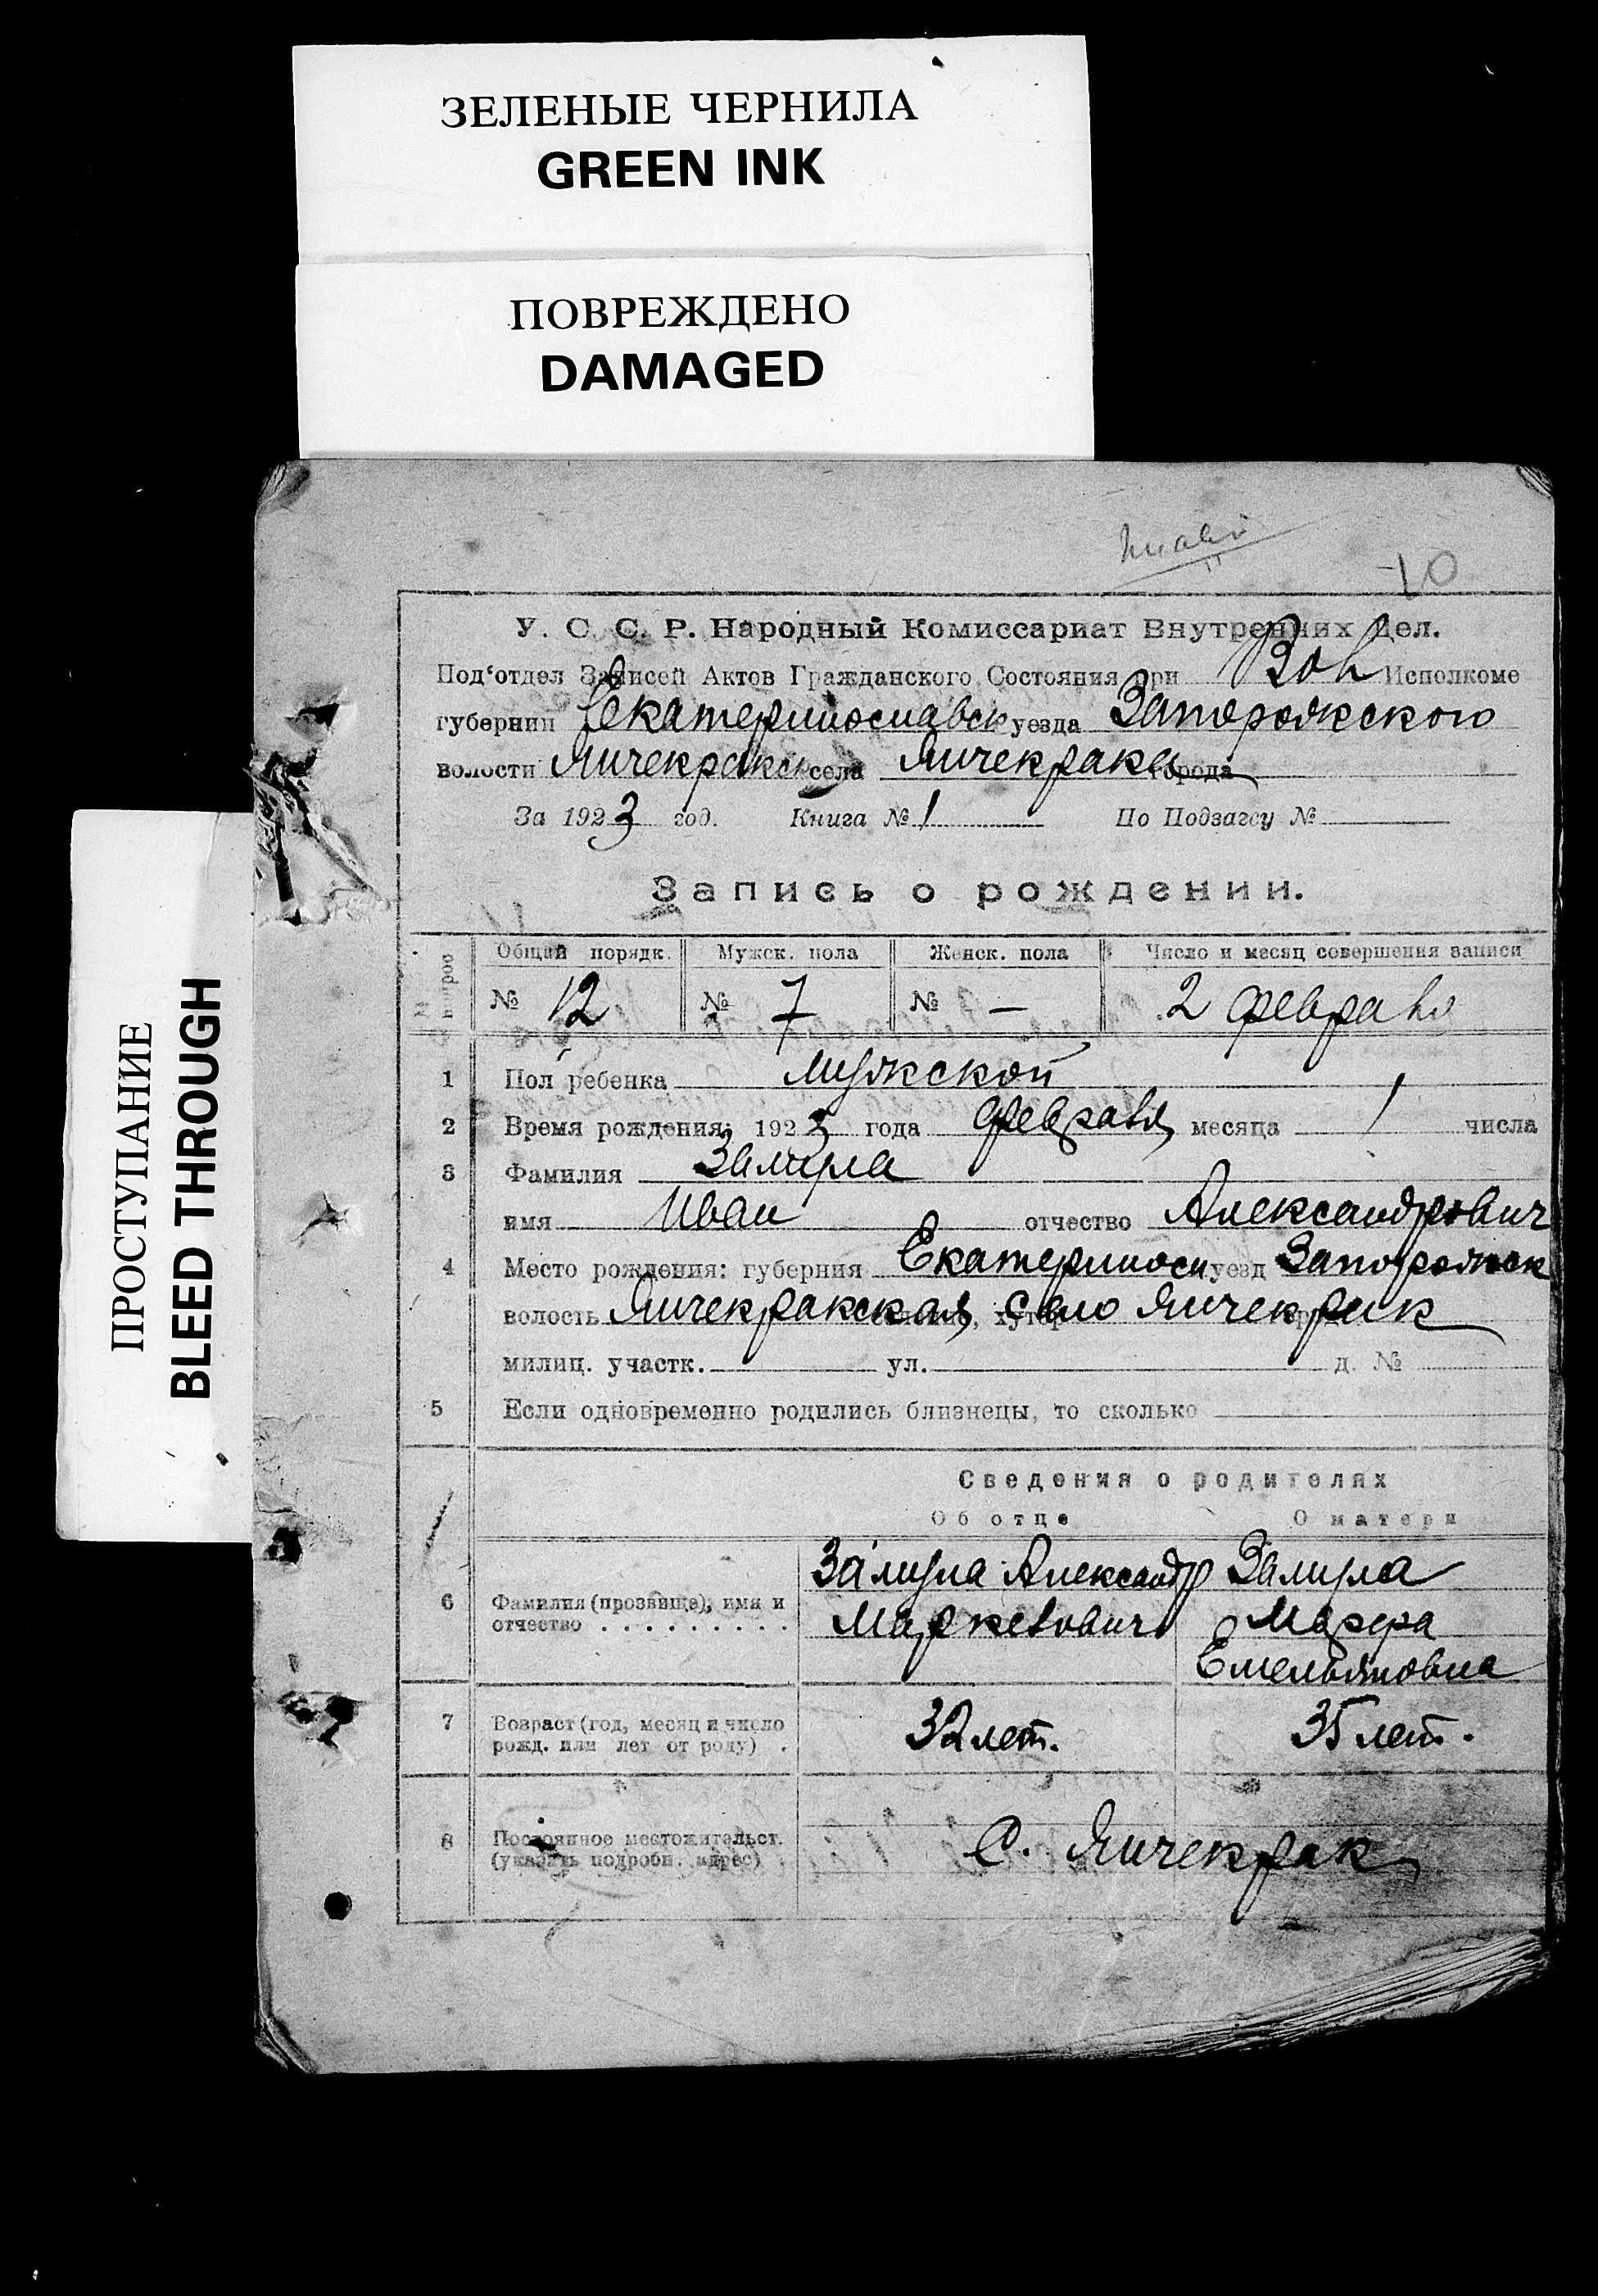 ЗЕЛЕНЫЕ ЧЕРНИЛА
GREEN INK
ПОВРЕЖДЕНО
DAMAGED
ПРОСТУПАНИЕ
BLEED THROUGH
10
У. С. С. Р. Народный Комиссариат Внутренних Дел.
Под'отдел Записей Актов Гражданского Состояния при Вол Исполкоме
губернии Екатеринославск уезда Запорожского
волости Янчекракск села Янчекрака города
За 1923 год. Книга № 1 По Подзагсу №
Запись о рождении.
Общий порядк. Мужск. пола Женск. пола Число и месяц совершения записи
№ 12 № 7 № — 2 февраля
1 Пол ребенка мужской
2 Время рождения: 1923 года февраля месяца 1 числа
3 Фамилия Замула
имя Иван отчество Александрович
4 Место рождения: губерния Екатериносл уезд Запорожск
волость Янчекракская, село Янчекрак
милиц. участк. ул. д. №
5 Если одновременно родились близнецы, то сколько
Сведения о родителях
Об отце О матери
6 Фамилия (прозвище), имя и отчество . . . . . . . . .
Замула Александр
Маркетович
Замула
Марфа
Емельяновна
7 Возраст (год, месяц и число
рожд. или лет от роду) .
32 лет. 35 лет.
8 Постоянное местожительст.
(указать подробн. адрес)
С. Янчекрак